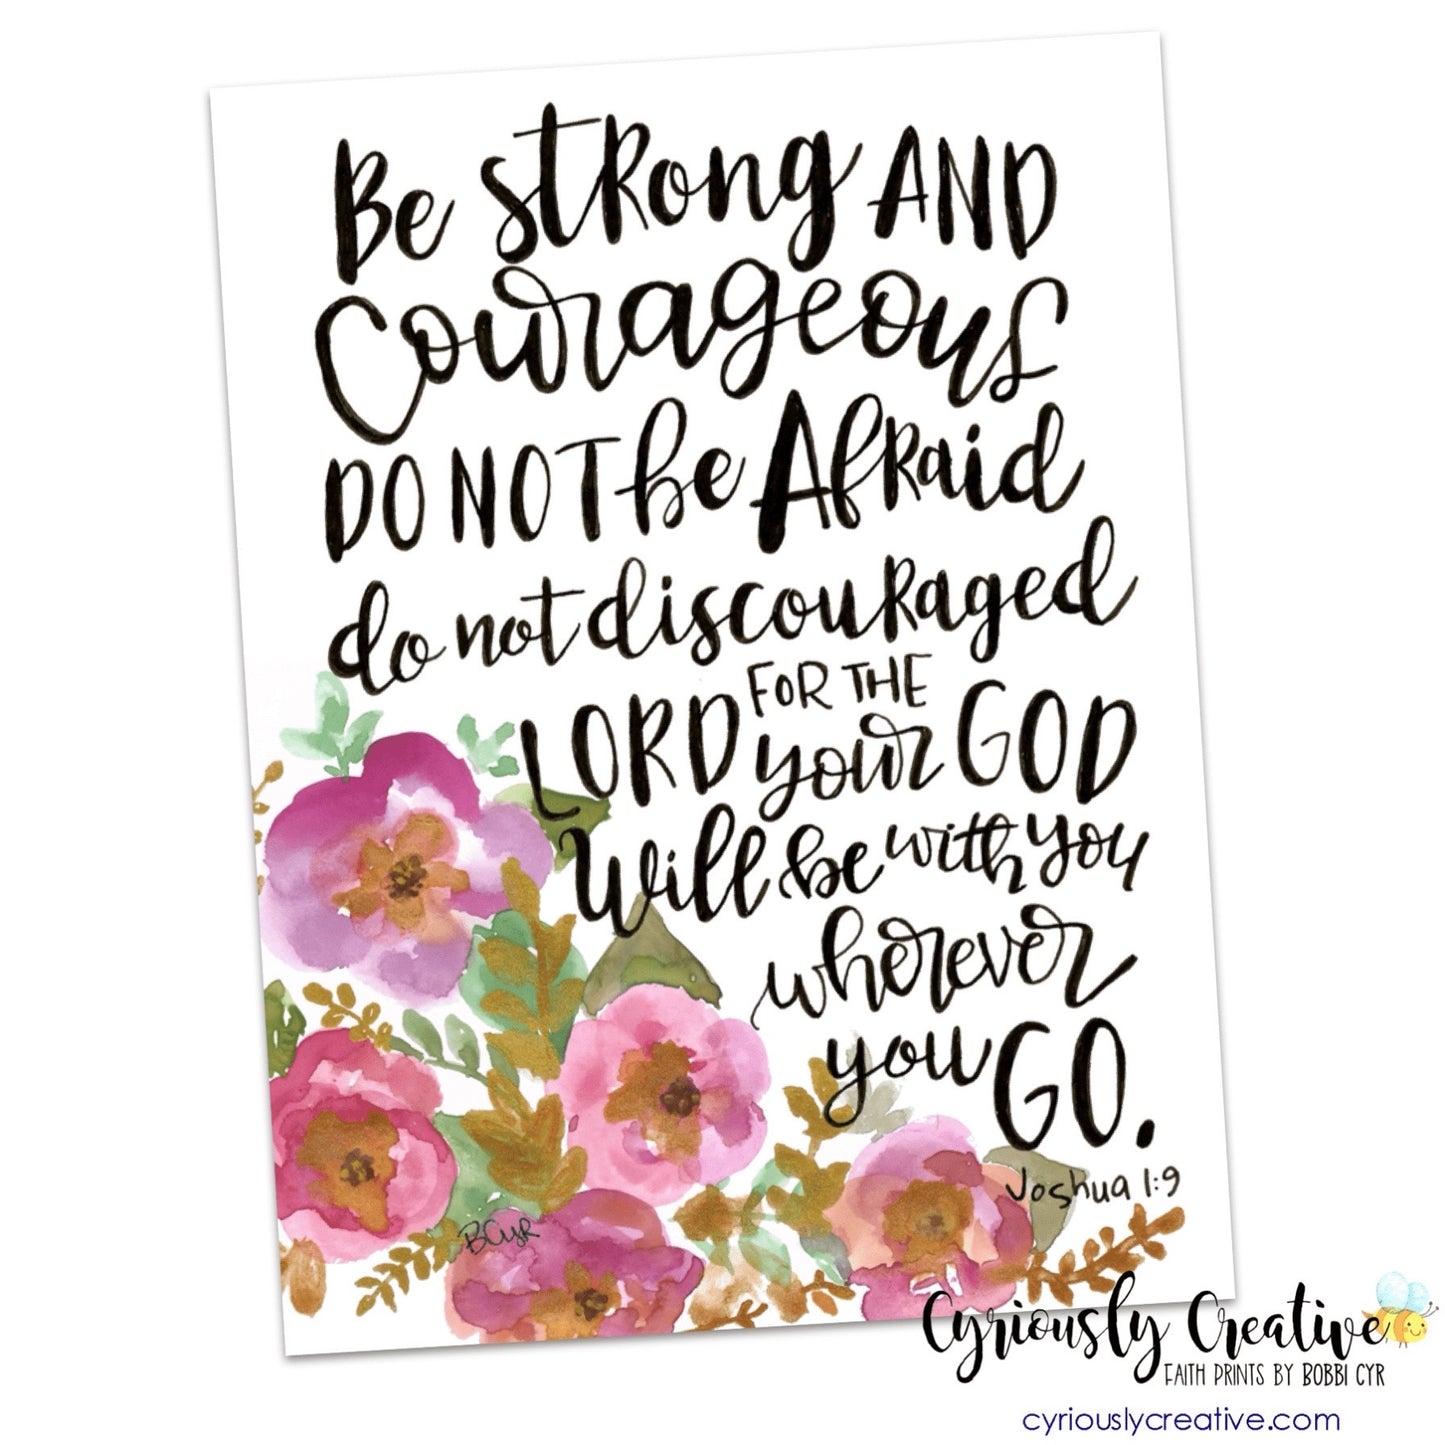 Be strong AND
Courageous
DO NOT be Afraid
do not discouraged
FOR THE
LORD your GOD
Will be with you
wherever
you GO.
Joshua 1:9
BCyr
Cyriously Creative
FAITH PRINTS BY BOBBI CYR
cyriouslycreative.com